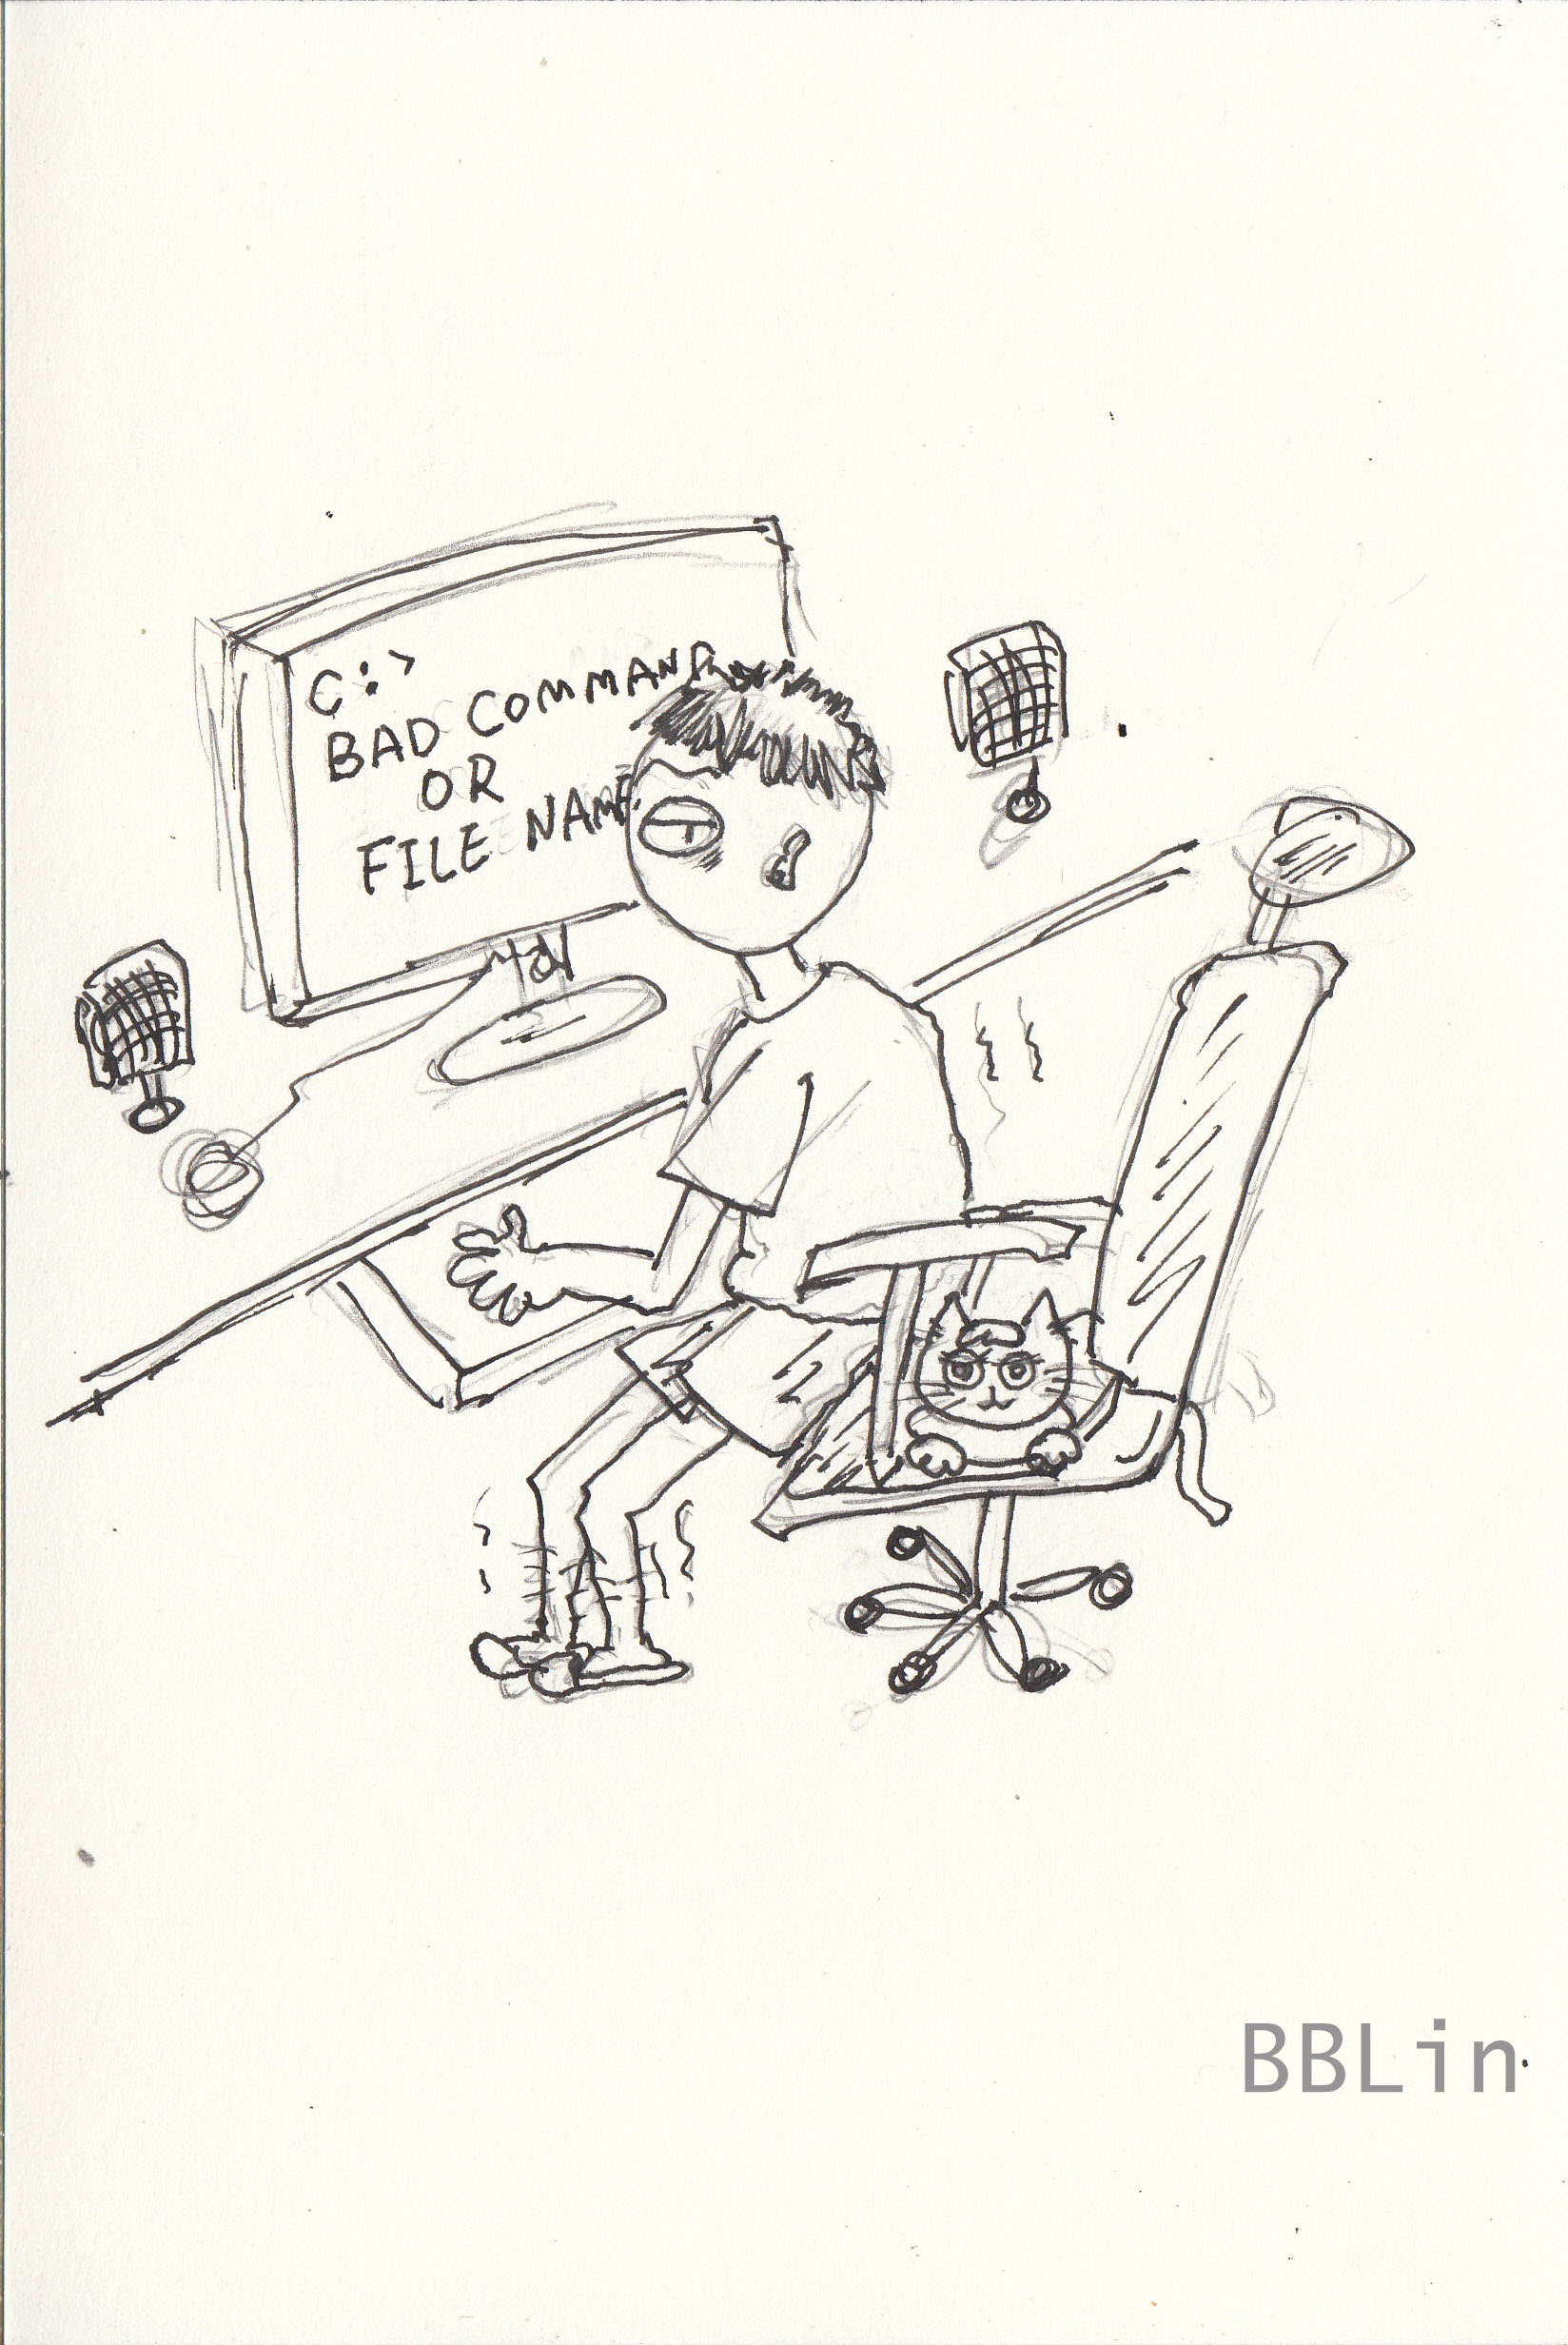 C:>
BAD COMMAND
OR
FILE NAME
BBLin